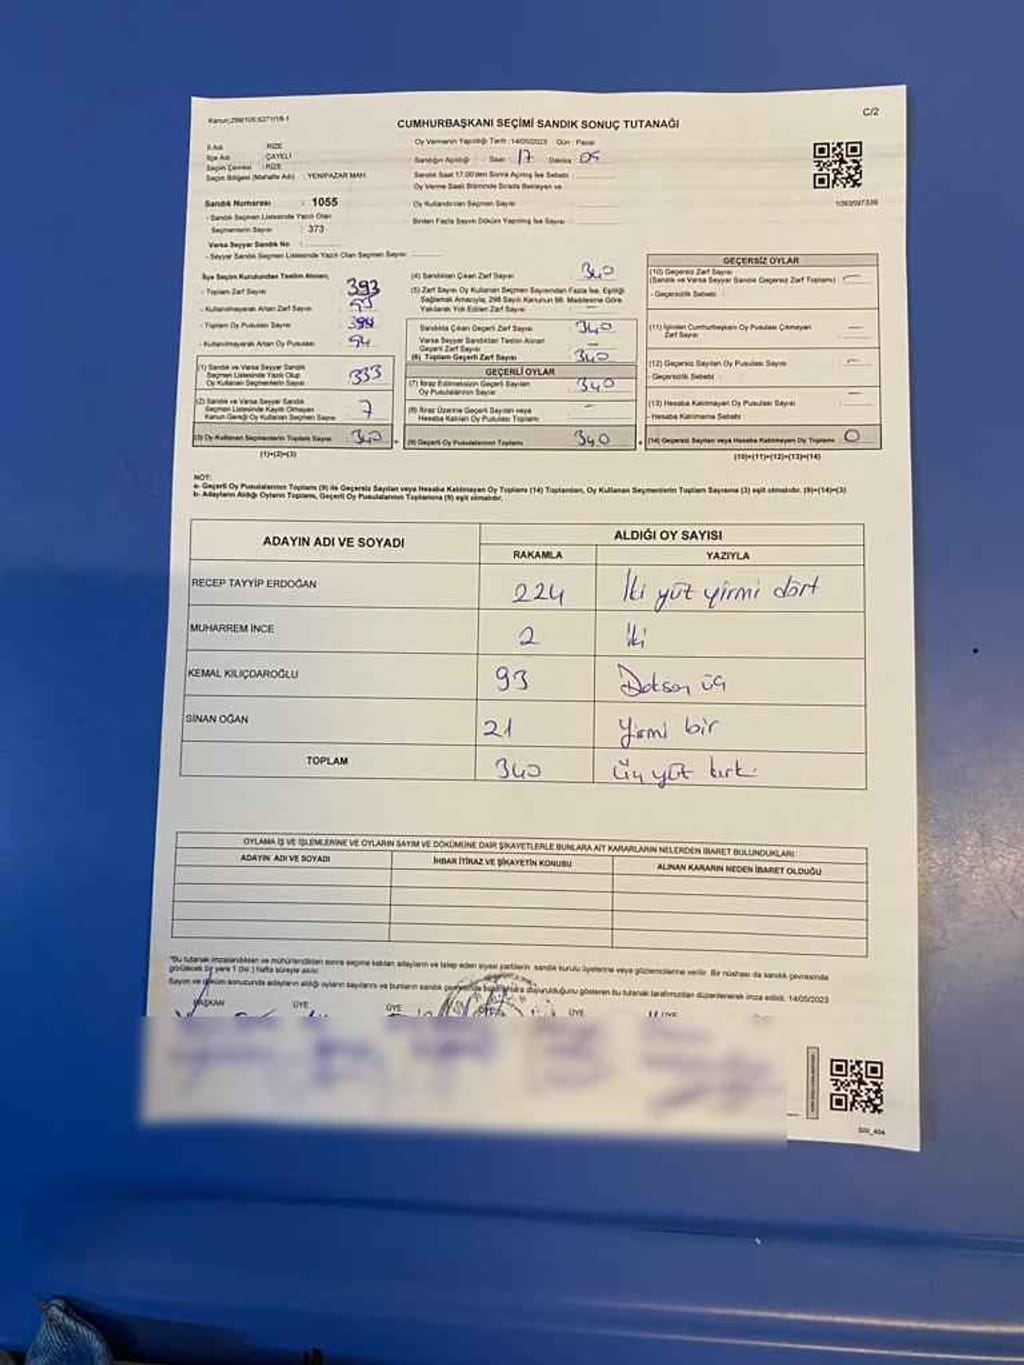 Kanun:298/105:6271/18-1
C/2
CUMHURBAŞKANI SEÇİMİ SANDIK SONUÇ TUTANAĞI
İl Adı : RİZE
İlçe Adı : ÇAYELİ
Seçim Çevresi : RİZE
Seçim Bölgesi (Mahalle Adı) : YENİPAZAR MAH.
Oy Vermenin Yapıldığı Tarih : 14/05/2023 Gün : Pazar
Sandığın Açıldığı : Saat : 17 Dakika : 05
Sandık Saat 17.00'den Sonra Açılmış İse Sebebi :
Oy Verme Saati Bitiminde Sırada Bekleyen ve
Oy Kullandırılan Seçmen Sayısı :
Birden Fazla Sayım Döküm Yapılmış İse Sayısı :
Sandık Numarası : 1055
- Sandık Seçmen Listesinde Yazılı Olan
Seçmenlerin Sayısı : 373
Varsa Seyyar Sandık No :
- Seyyar Sandık Seçmen Listesinde Yazılı Olan Seçmen Sayısı :
İlçe Seçim Kurulundan Teslim Alınan;
- Toplam Zarf Sayısı : 393
- Kullanılmayarak Artan Zarf Sayısı :
- Toplam Oy Pusulası Sayısı :
- Kullanılmayarak Artan Oy Pusulası : 54
(1) Sandık ve Varsa Seyyar Sandık
Seçmen Listesinde Yazılı Olup
Oy Kullanan Seçmenlerin Sayısı : 333
(2) Sandık ve Varsa Seyyar Sandık
Seçmen Listesinde Kayıtlı Olmayan
Kanun Gereği Oy Kullanan Seçmen Sayısı : 7
(3) Oy Kullanan Seçmenlerin Toplam Sayısı : 340
(1)+(2)=(3)
(4) Sandıktan Çıkan Zarf Sayısı : 340
(5) Zarf Sayısı Oy Kullanan Seçmen Sayısından Fazla İse, Eşitliği
Sağlamak Amacıyla; 298 Sayılı Kanunun 98. Maddesine Göre
Yakılarak Yok Edilen Zarf Sayısı : —
Sandıkta Çıkan Geçerli Zarf Sayısı : 340
Varsa Seyyar Sandıktan Teslim Alınan
Geçerli Zarf Sayısı : —
(6) Toplam Geçerli Zarf Sayısı : 340
GEÇERLİ OYLAR
(7) İtiraz Edilmeksizin Geçerli Sayılan
Oy Pusulalarının Sayısı : 340
(8) İtiraz Üzerine Geçerli Sayılan veya
Hesaba Katılan Oy Pusulası Toplamı : —
(9) Geçerli Oy Pusulalarının Toplamı : 340
GEÇERSİZ OYLAR
(10) Geçersiz Zarf Sayısı
(Sandık ve Varsa Seyyar Sandık Geçersiz Zarf Toplamı) : —
- Geçersizlik Sebebi :
(11) İçinden Cumhurbaşkanı Oy Pusulası Çıkmayan
Zarf Sayısı : —
(12) Geçersiz Sayılan Oy Pusulası Sayısı : —
- Geçersizlik Sebebi :
(13) Hesaba Katılmayan Oy Pusulası Sayısı : —
- Hesaba Katılmama Sebebi :
(14) Geçersiz Sayılan veya Hesaba Katılmayan Oy Toplamı : 0
(10)+(11)+(12)+(13)=(14)
NOT:
a- Geçerli Oy Pusulalarının Toplamı (9) ile Geçersiz Sayılan veya Hesaba Katılmayan Oy Toplamı (14) Toplamları, Oy Kullanan Seçmenlerin Toplam Sayısına (3) eşit olmalıdır. (9)+(14)=(3)
b- Adayların Aldığı Oyların Toplamı, Geçerli Oy Pusulalarının Toplamına (9) eşit olmalıdır.
ADAYIN ADI VE SOYADI
ALDIĞI OY SAYISI
RAKAMLA YAZIYLA
RECEP TAYYİP ERDOĞAN 224 İki yüz yirmi dört
MUHARREM İNCE 2 İki
KEMAL KILIÇDAROĞLU 93 Doksan üç
SİNAN OĞAN 21 Yirmi bir
TOPLAM 340 Üç yüz kırk
OYLAMA İŞ VE İŞLEMLERİNE VE OYLARIN SAYIM VE DÖKÜMÜNE DAİR ŞİKAYETLERLE BUNLARA AİT KARARLARIN NELERDEN İBARET BULUNDUKLARI
ADAYIN ADI VE SOYADI İHBAR İTİRAZ VE ŞİKAYETİN KONUSU ALINAN KARARIN NEDEN İBARET OLDUĞU
*Bu tutanak imzalandıktan ve mühürlendikten sonra seçime katılan adayların ve talep eden siyasi partilerin sandık kurulu üyelerine veya gözlemcilerine verilir. Bir nüshası da sandık çevresinde
görülecek bir yere 1 (bir) hafta süreyle asılır.
BAŞKAN ÜYE ÜYE ÜYE ÜYE ÜYE